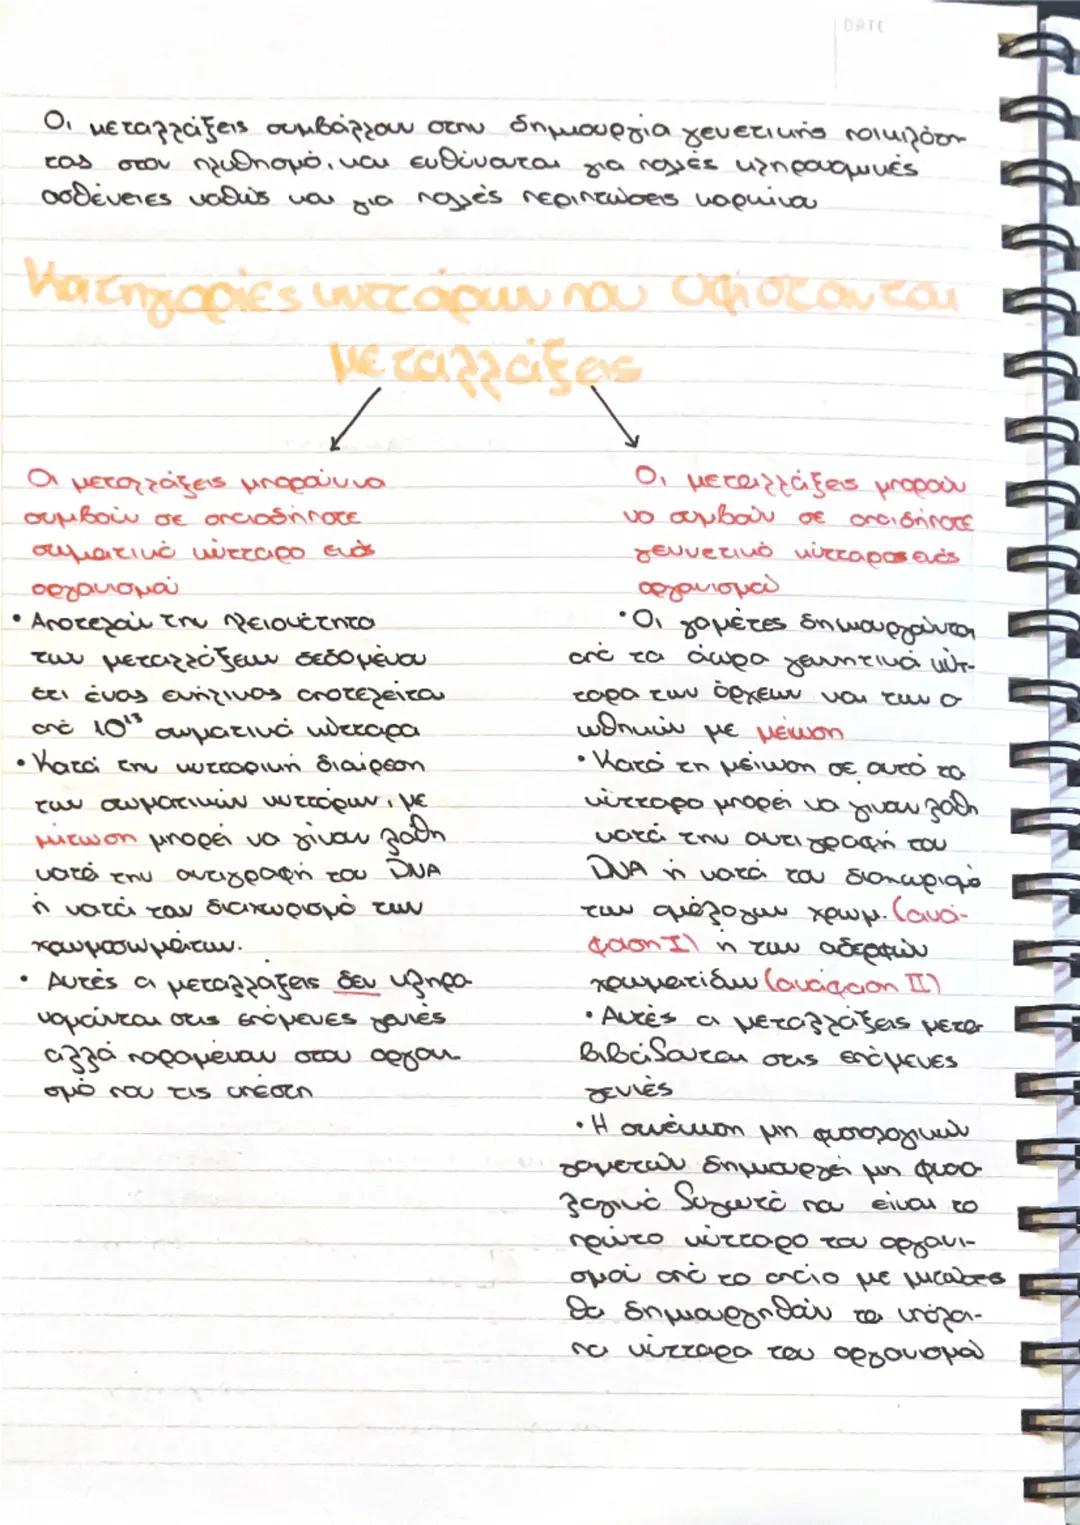 DATE
Οι μεταλλάξεις συμβάλλουν στην δημιουργία γενετικής ποικιλότη-
τας στον πληθησμό, και ευθύνονται για πολλές κληρονομικές
ασθένειες καθώς και για πολλές περιπτώσεις καρκίνου
Κατηγορίες κυττάρων που υφίστανται
μεταλλάξεις
Οι μεταλλάξεις μπορούν να
συμβούν σε οποιοδήποτε
σωματικό κύτταρο ενός
οργανισμού
• Αποτελούν την πλειονότητα
των μεταλλάξεων δεδομένου
ότι ένας ενήλικας αποτελείται
από 10¹³ σωματικά κύτταρα
• Κατά την κυτταρική διαίρεση
των σωματικών κυττάρων, με
μίτωση μπορεί να γίνουν λάθη
κατά την αντιγραφή του DNA
ή κατά τον διαχωρισμό των
χρωμοσωμάτων.
• Αυτές οι μεταλλάξεις δεν κληρο
νομούνται στις επόμενες γενιές
αλλά παραμένουν στον οργανι
σμό που τις υπέστη
Οι μεταλλάξεις μπορούν
να συμβούν σε οποιδήποτε
γεννετικό κύτταρο ενός
οργανισμού
• Οι γαμέτες δημιουργούνται
από τα άωρα γεννητικά κύτ-
ταρα των όρχεων και των ο
ωθηκών με μείωση
• Κατά τη μείωση σε αυτό το
κύτταρο μπορεί να γίνουν λάθη
κατά την αντιγραφή του
DNA ή κατά τον διαχωρισμό
των ομόλογων χρωμ. (ανά-
φαση I) ή των αδερφών
χρωματίδων (ανάφαση II)
• Αυτές οι μεταλλάξεις μετα
βιβάζονται στις επόμενες
γενιές
• Η σύντηξη μη φυσιολογικών
γαμετών δημιουργεί μη φυσιο
λογικό ζυγωτό που είναι το
πρώτο κύτταρο του οργανι-
σμού από το οποίο με μιτώσεις
θα δημιουργηθούν τα υπόλοι-
πα κύτταρα του οργανισμού